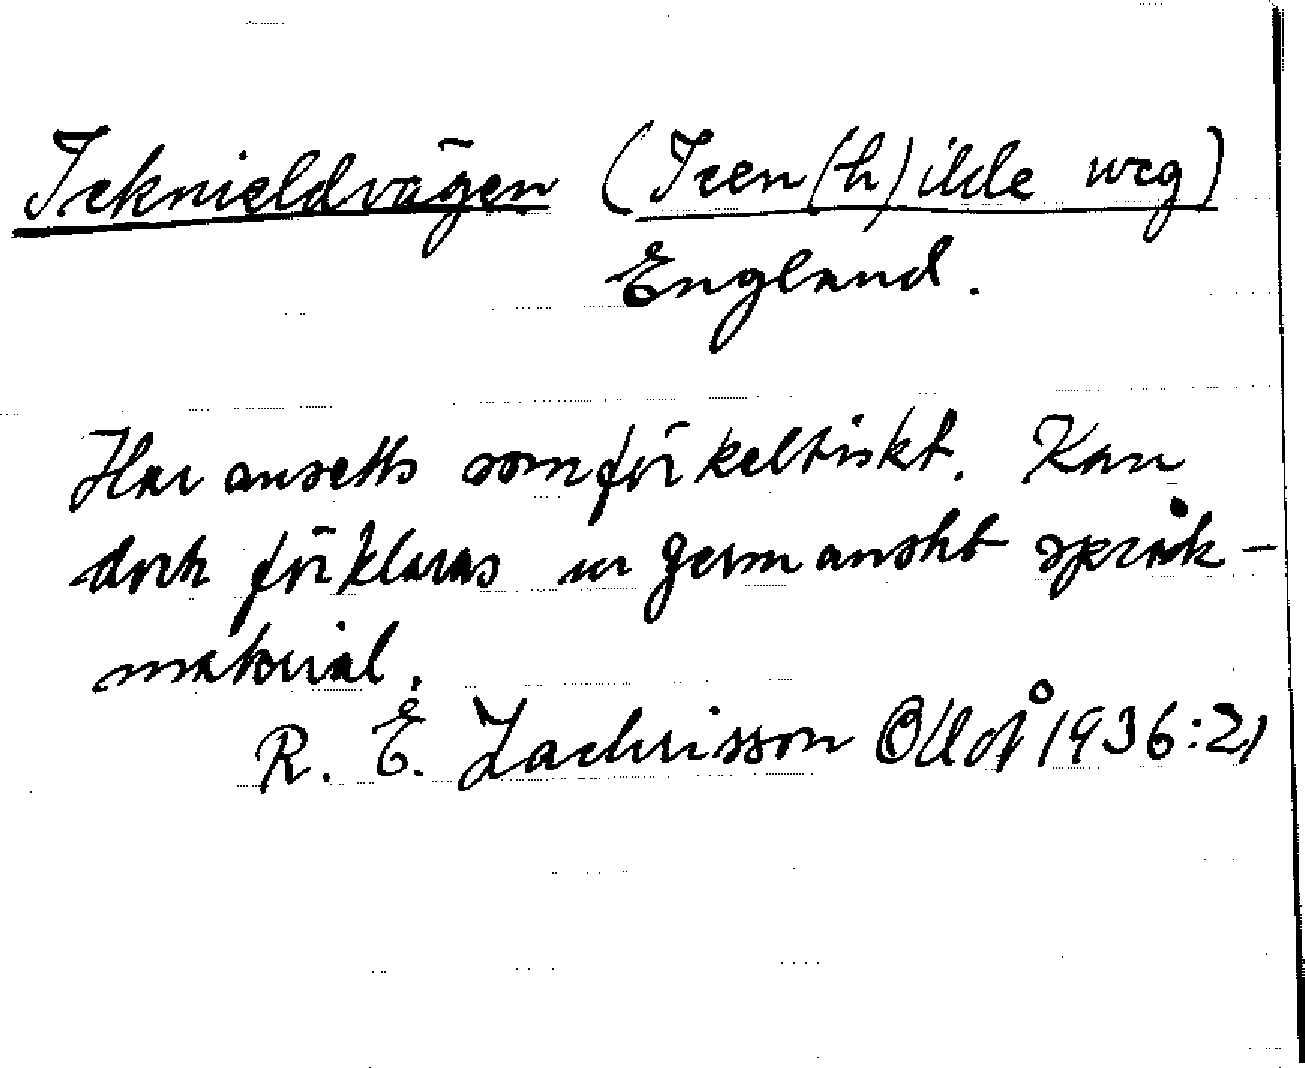 Icknieldvägen (Icen(h)ilde weg)
England.
Har ansetts som förkeltiskt. Kan
dock förklaras ur germanskt språk-
material.
R. E. Zachrisson 1936:2,